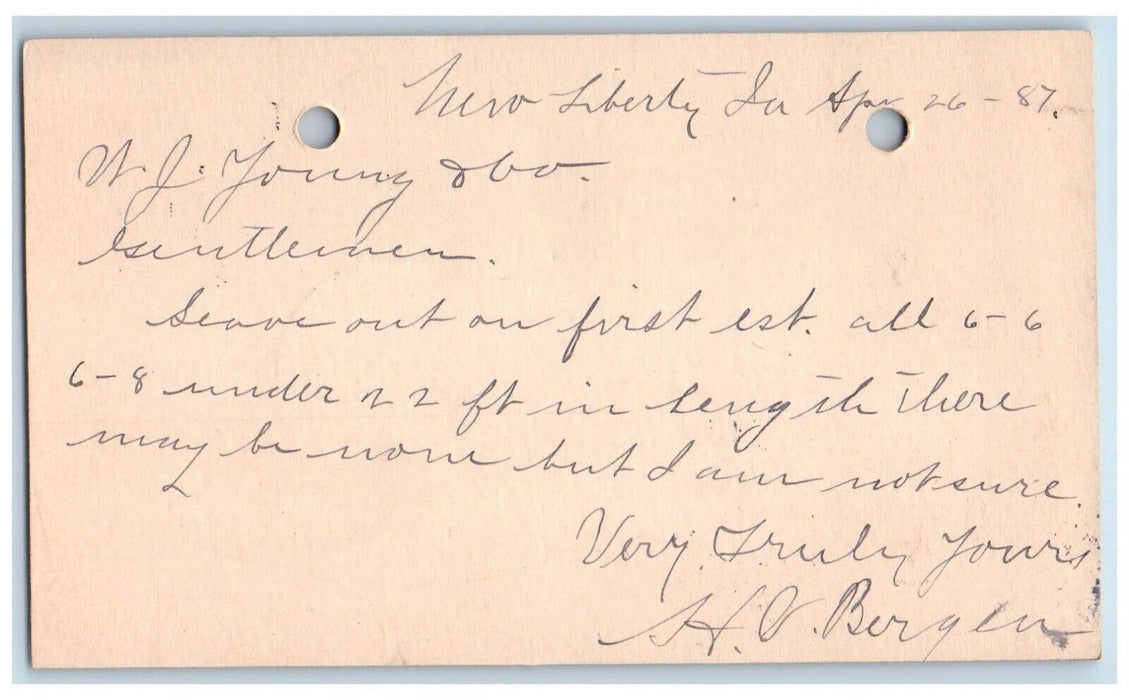 New Liberty Ia Apr 26 - 87.
W. J. Young & Co.
Gentlemen.
Leave out on first est. all 6-6
6-8 under 22 ft in length there
may be none but I am not sure.
Very Truly Yours
H. V. Bergen